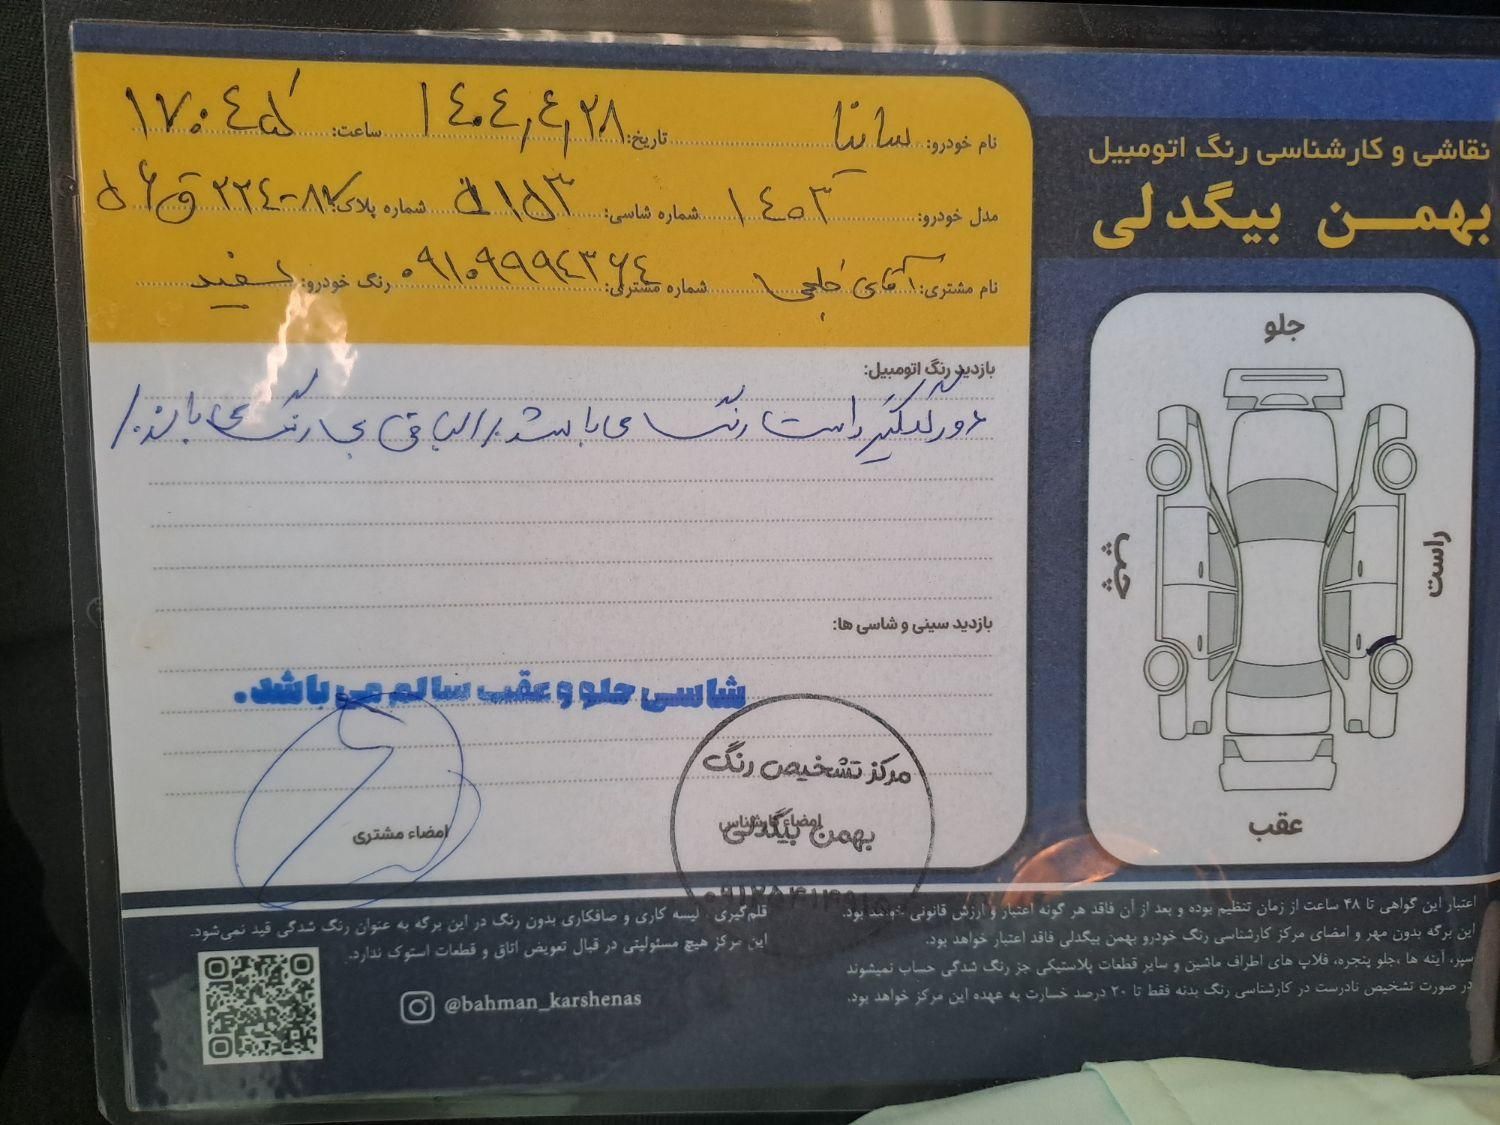 نقاشی و کارشناسی رنگ اتومبیل
بهمـــن بیگدلی
نام خودرو: ساینا تاریخ: ۱۴۰۴٫۴٫۲۸ ساعت: ۱۷:۰۴
مدل خودرو: ۱۴۰۳ شماره شاسی: شماره پلاک:
نام مشتری: آقای خلجی شماره مشتری: ۰۹۱۰۹۹۹۴۳۶۴ رنگ خودرو: سفید
بازدید رنگ اتومبیل:
دور گلگیر راست رنگ می باشد / الباقی بی رنگ می باشد /
بازدید سینی و شاسی ها:
شاسی جلو و عقب سالم می باشد.
مرکز تشخیص رنگ
امضاء کارشناس
بهمن بیگدلی
امضاء مشتری
جلو
چپ
راست
عقب
اعتبار این گواهی تا ۴۸ ساعت از زمان تنظیم بوده و بعد از آن فاقد هر گونه اعتبار و ارزش قانونی خواهد بود.
این برگه بدون مهر و امضای مرکز کارشناسی رنگ خودرو بهمن بیگدلی فاقد اعتبار خواهد بود.
سپر، آینه ها ،جلو پنجره، فلاپ های اطراف ماشین و سایر قطعات پلاستیکی جز رنگ شدگی حساب نمیشوند
در صورت تشخیص نادرست در کارشناسی رنگ بدنه فقط تا ۲۰ درصد خسارت به عهده این مرکز خواهد بود.
قلم‌گیری لیسه کاری و صافکاری بدون رنگ در این برگه به عنوان رنگ شدگی قید نمی‌شود.
این مرکز هیچ مسئولیتی در قبال تعویض اتاق و قطعات استوک ندارد.
@bahman_karshenas